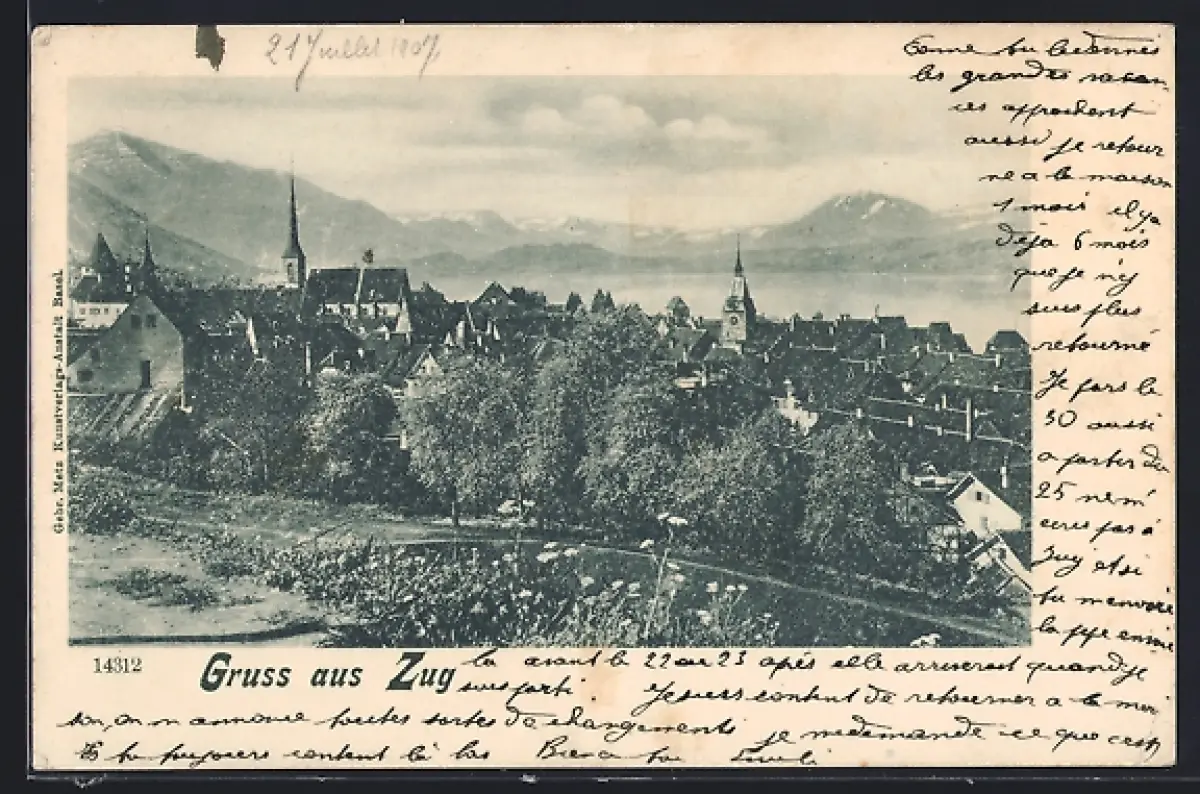 21 Juillet 1907
Comme tu le donnes
les grandes vacan
ces approchent
aussi je retour
ne a la maison
1 mois il ya
déja 6 mois
que je n'y
suis plus
retourné
Je pars le
30 aussi
a partir du
25 ne m'
ecris pas à
Zug et si
tu m'envoie
la
la avant le 22 ou 23 après elle arriverait quand je
suis parti. Je suis content de retourner a la mai
son, on m annonce toutes sortes de changements je me demande ce que c'est
Es tu toujours content là bas Bien a toi
Gebr. Metz Kunstverlags-Anstalt Basel.
14312
Gruss aus Zug